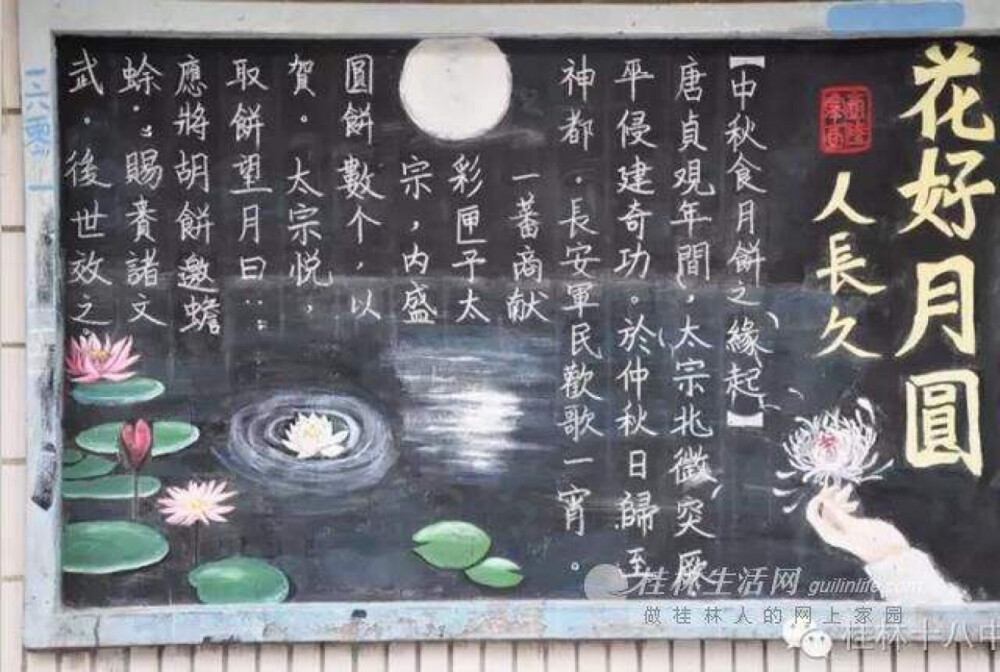 花好月圓
人長久
【中秋食月餅之緣起】
唐貞观年間，太宗北徵突厥
平侵建奇功。於仲秋日歸至
神都．長安軍民歡歌一宵。
一蕃商献
彩匣子太
宗，内盛
圓餅數个，以
賀。太宗悦，
取餅望月曰：：
應將胡餅邀蟾
蜍．：賜賚諸文
武．後世效之。
一六零一
桂林生活网 guilinlife.com
做桂林人的网上家园
桂林十八中